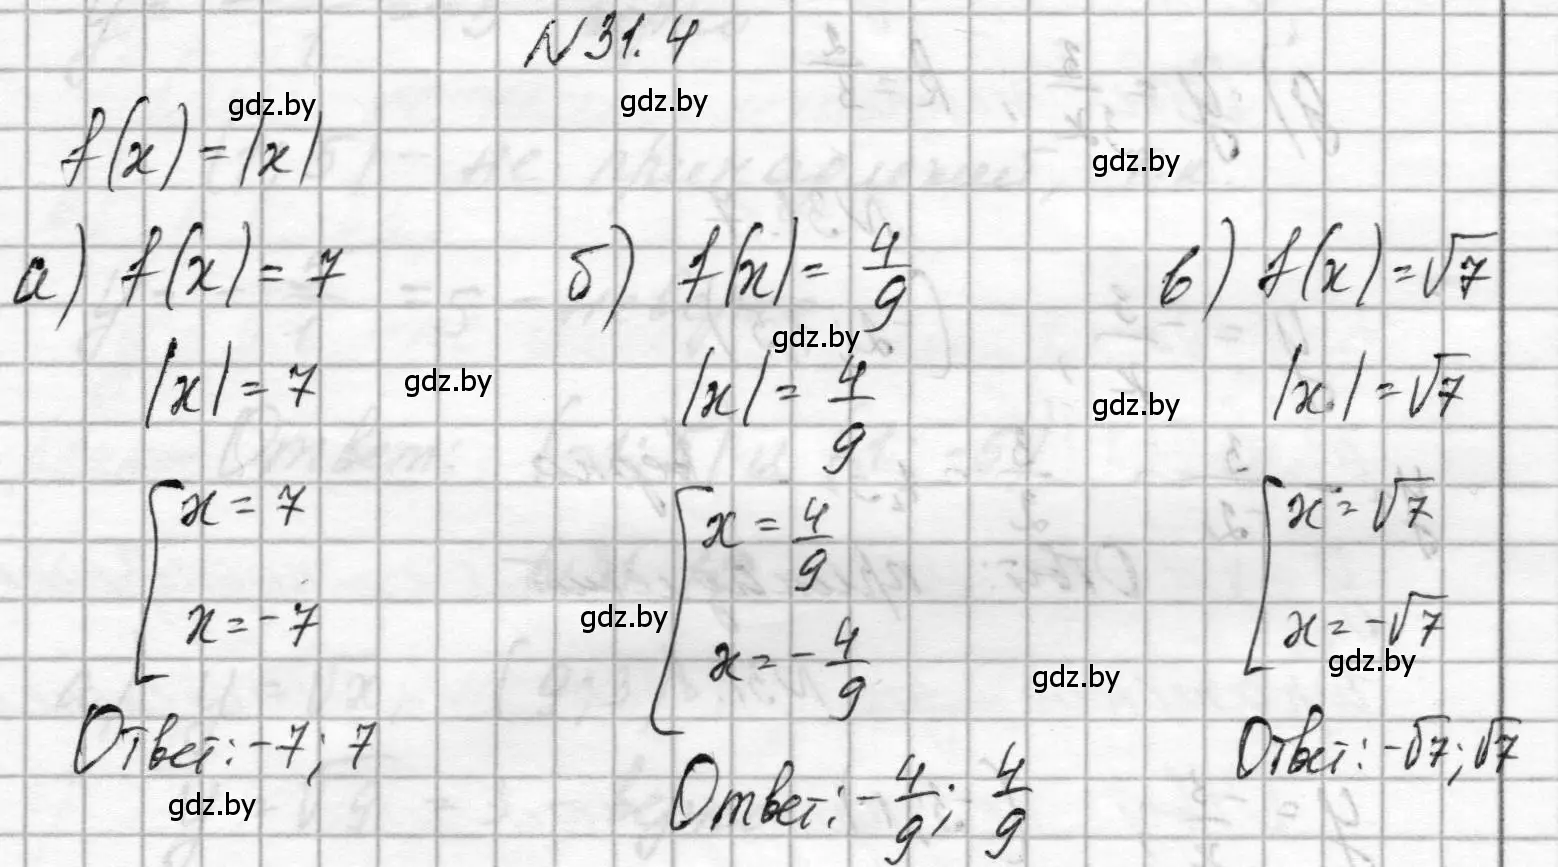 N 31.4
gdz.by gdz.by
f(x) = |x|
gdz.by
а) f(x) = 7
|x| = 7
gdz.by
[ x = 7
x = -7
Ответ: -7; 7
gdz.by
б) f(x) = 4/9
gdz.by
|x| = 4/9
[ x = 4/9
gdz.by
x = - 4/9
Ответ: - 4/9; 4/9
в) f(x) = √7
gdz.by
|x| = √7
[ x = √7
x = -√7
gdz.by
gdz.by
Ответ: -√7; √7